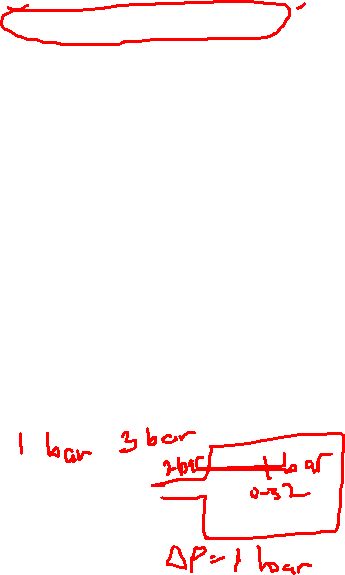 1 bar 3 bar
2 bar bar
0.52
ΔP = 1 bar